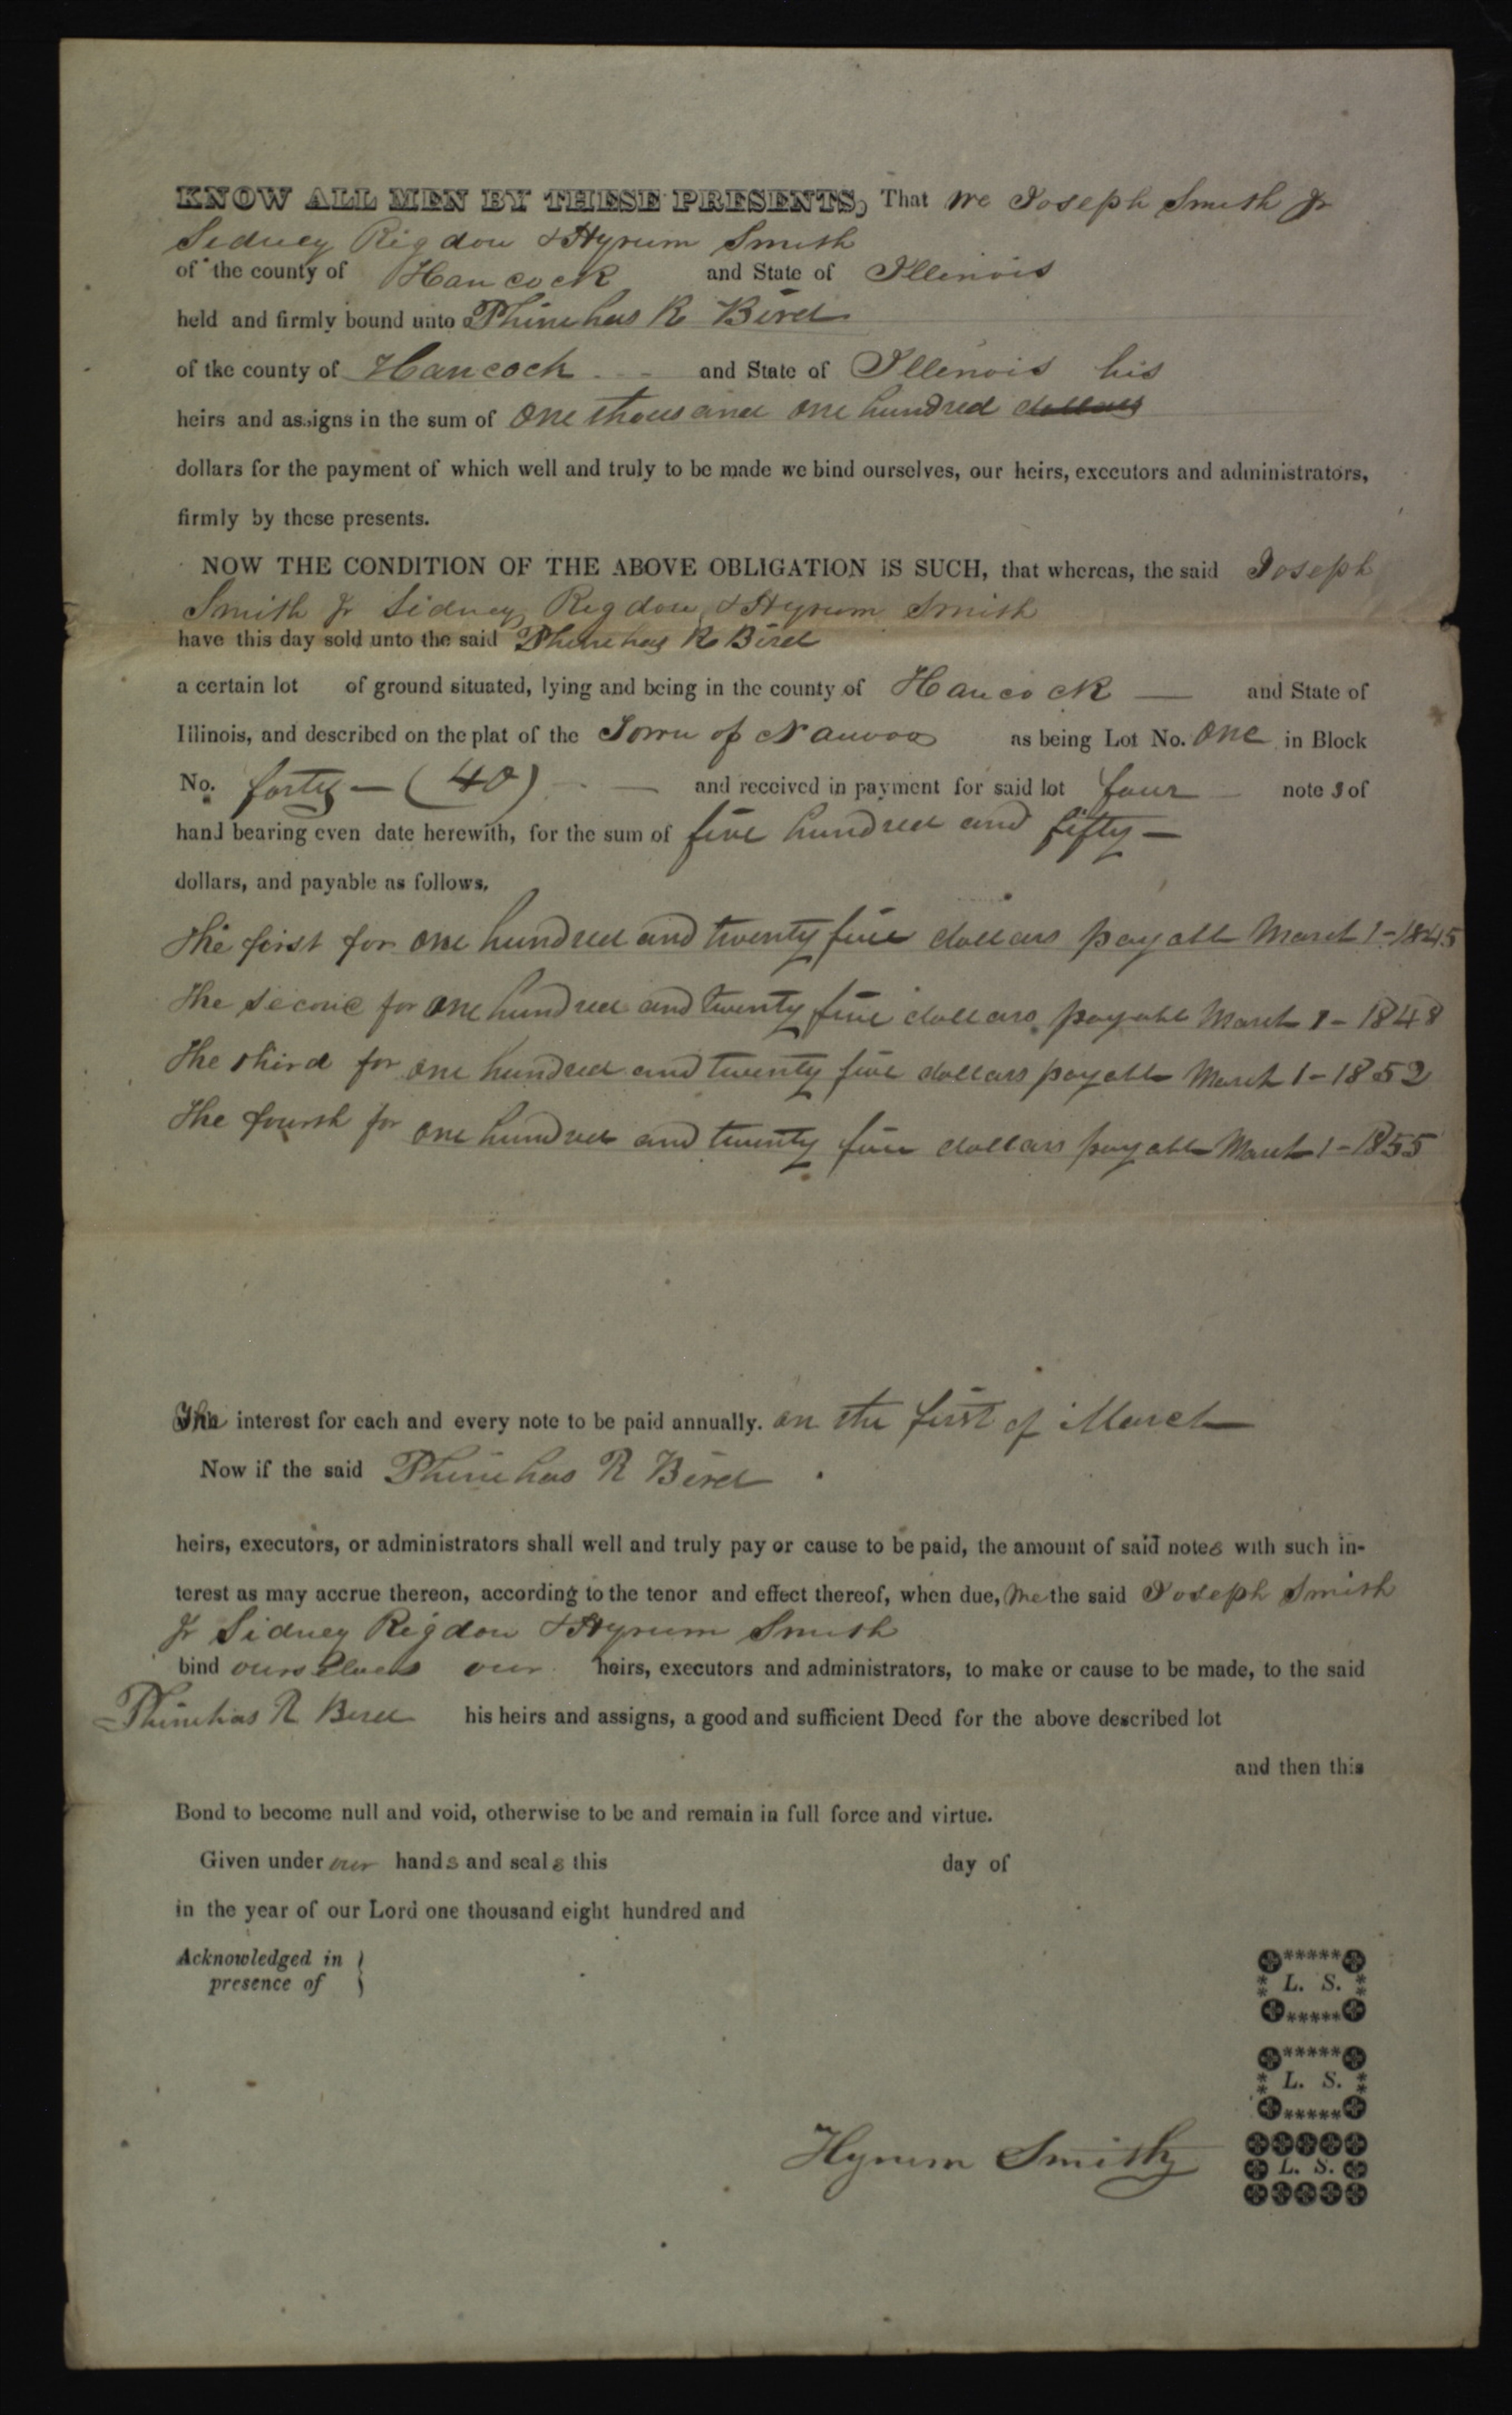 KNOW ALL MEN BY THESE PRESENTS, That we Joseph Smith Jr
Sidney Rigdon & Hyrum Smith
of the county of Hancock and State of Illinois
held and firmly bound unto Phinehas R Bird
of the county of Hancock - - and State of Illinois his
heirs and assigns in the sum of One thousand one hundred dollars
dollars for the payment of which well and truly to be made we bind ourselves, our heirs, executors and administrators,
firmly by these presents.
NOW THE CONDITION OF THE ABOVE OBLIGATION IS SUCH, that whereas, the said Joseph
Smith Jr Sidney Rigdon & Hyrum Smith
have this day sold unto the said Phinehas R Bird
a certain lot of ground situated, lying and being in the county of Hancock — and State of
Illinois, and described on the plat of the Town of Nauvoo as being Lot No. One in Block
No. forty — (40) - — and received in payment for said lot four — note s of
hand bearing even date herewith, for the sum of five hundred and fifty —
dollars, and payable as follows,
The first for one hundred and twenty five dollars payable March 1 - 1845
The second for one hundred and twenty five dollars payable March 1 - 1848
The third for one hundred and twenty five dollars payable March 1 - 1852
The fourth for one hundred and twenty five dollars payable March 1 - 1855
The interest for each and every note to be paid annually. on the first of March
Now if the said Phinehas R Bird
heirs, executors, or administrators shall well and truly pay or cause to be paid, the amount of said notes with such in-
terest as may accrue thereon, according to the tenor and effect thereof, when due, we the said Joseph Smith
Jr Sidney Rigdon & Hyrum Smith
bind ourselves our heirs, executors and administrators, to make or cause to be made, to the said
Phinehas R Bird his heirs and assigns, a good and sufficient Deed for the above described lot
and then this
Bond to become null and void, otherwise to be and remain in full force and virtue.
Given under our hands and seals this day of
in the year of our Lord one thousand eight hundred and
Acknowledged in
presence of
L. S.
L. S.
Hyrum Smith L. S.